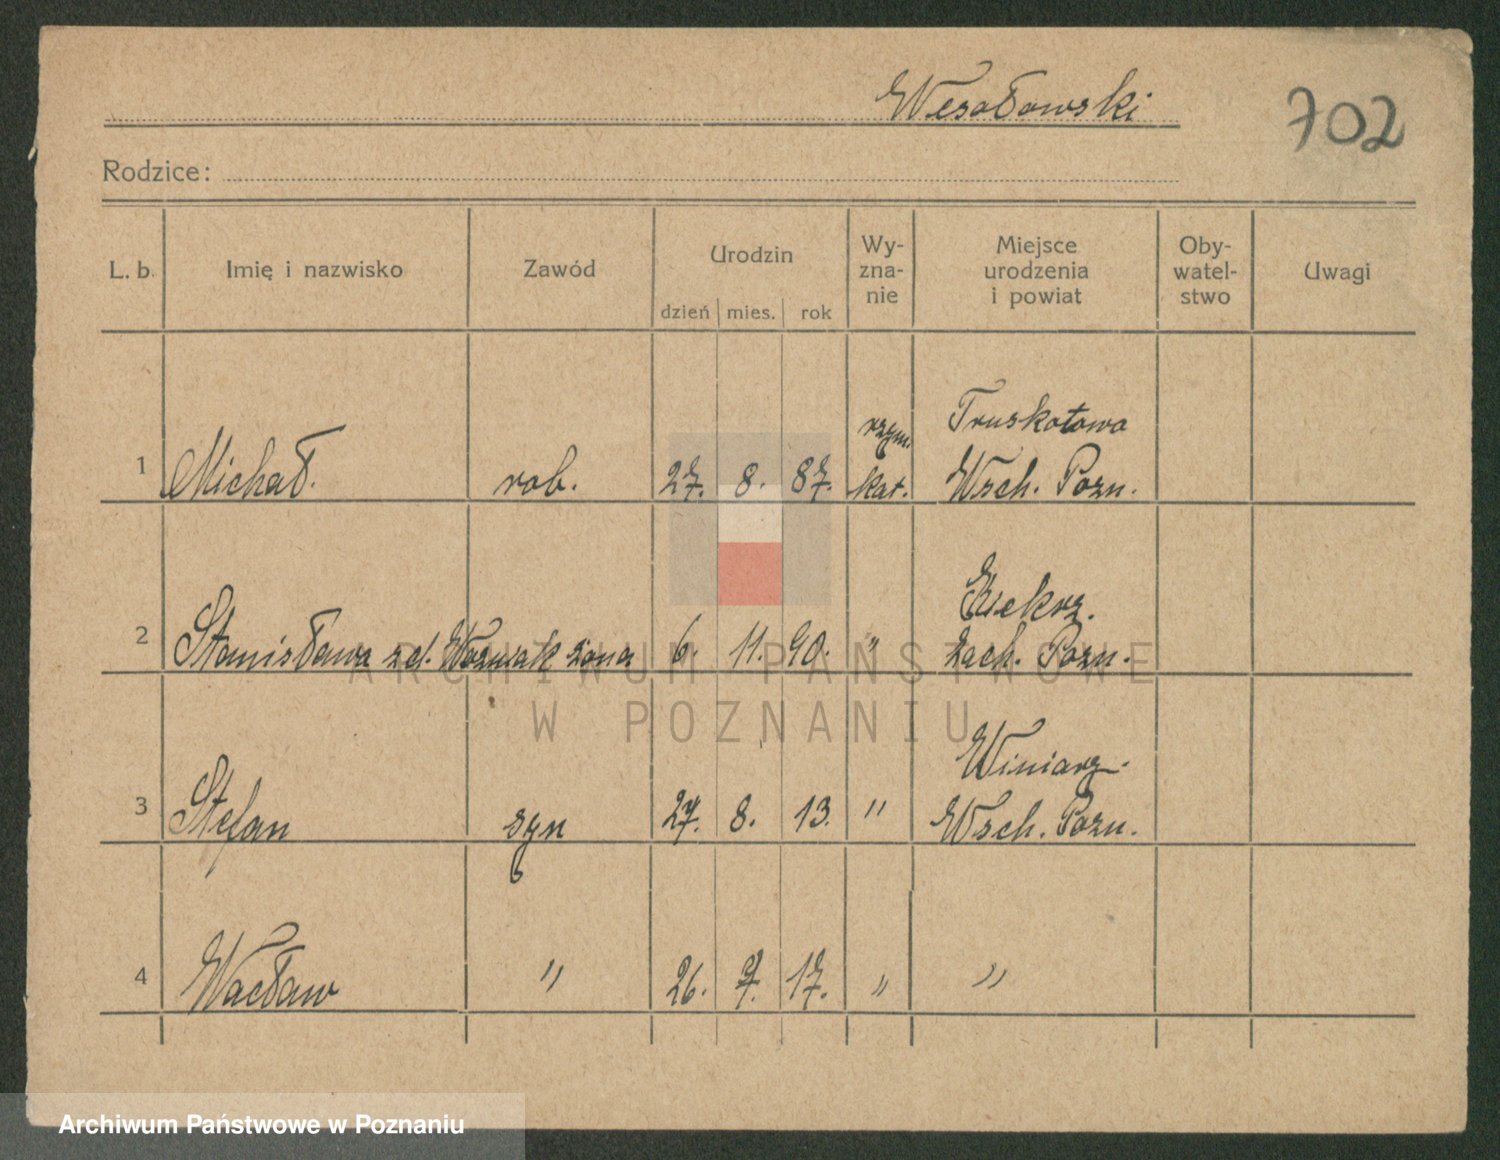 Wesołowski
702
Rodzice:
L. b. Imię i nazwisko Zawód Urodzin Wy-zna-nie Miejsce urodzenia i powiat Oby-watel-stwo Uwagi
dzień mies. rok
rzym. Truskotowo
1 Michał. rob. 27. 8. 87. kat. Wsch. Pozn.
Kiekrz.
2 Stanisława z d. Woźniak żona 6. 11. 90. " Zach. Pozn.
Winiarz.
3 Stefan syn 27. 8. 13. " Wsch. Pozn.
4 Wacław " 26. 9. 17. " "
ARCHIWUM PAŃSTWOWE
W POZNANIU
Archiwum Państwowe w Poznaniu